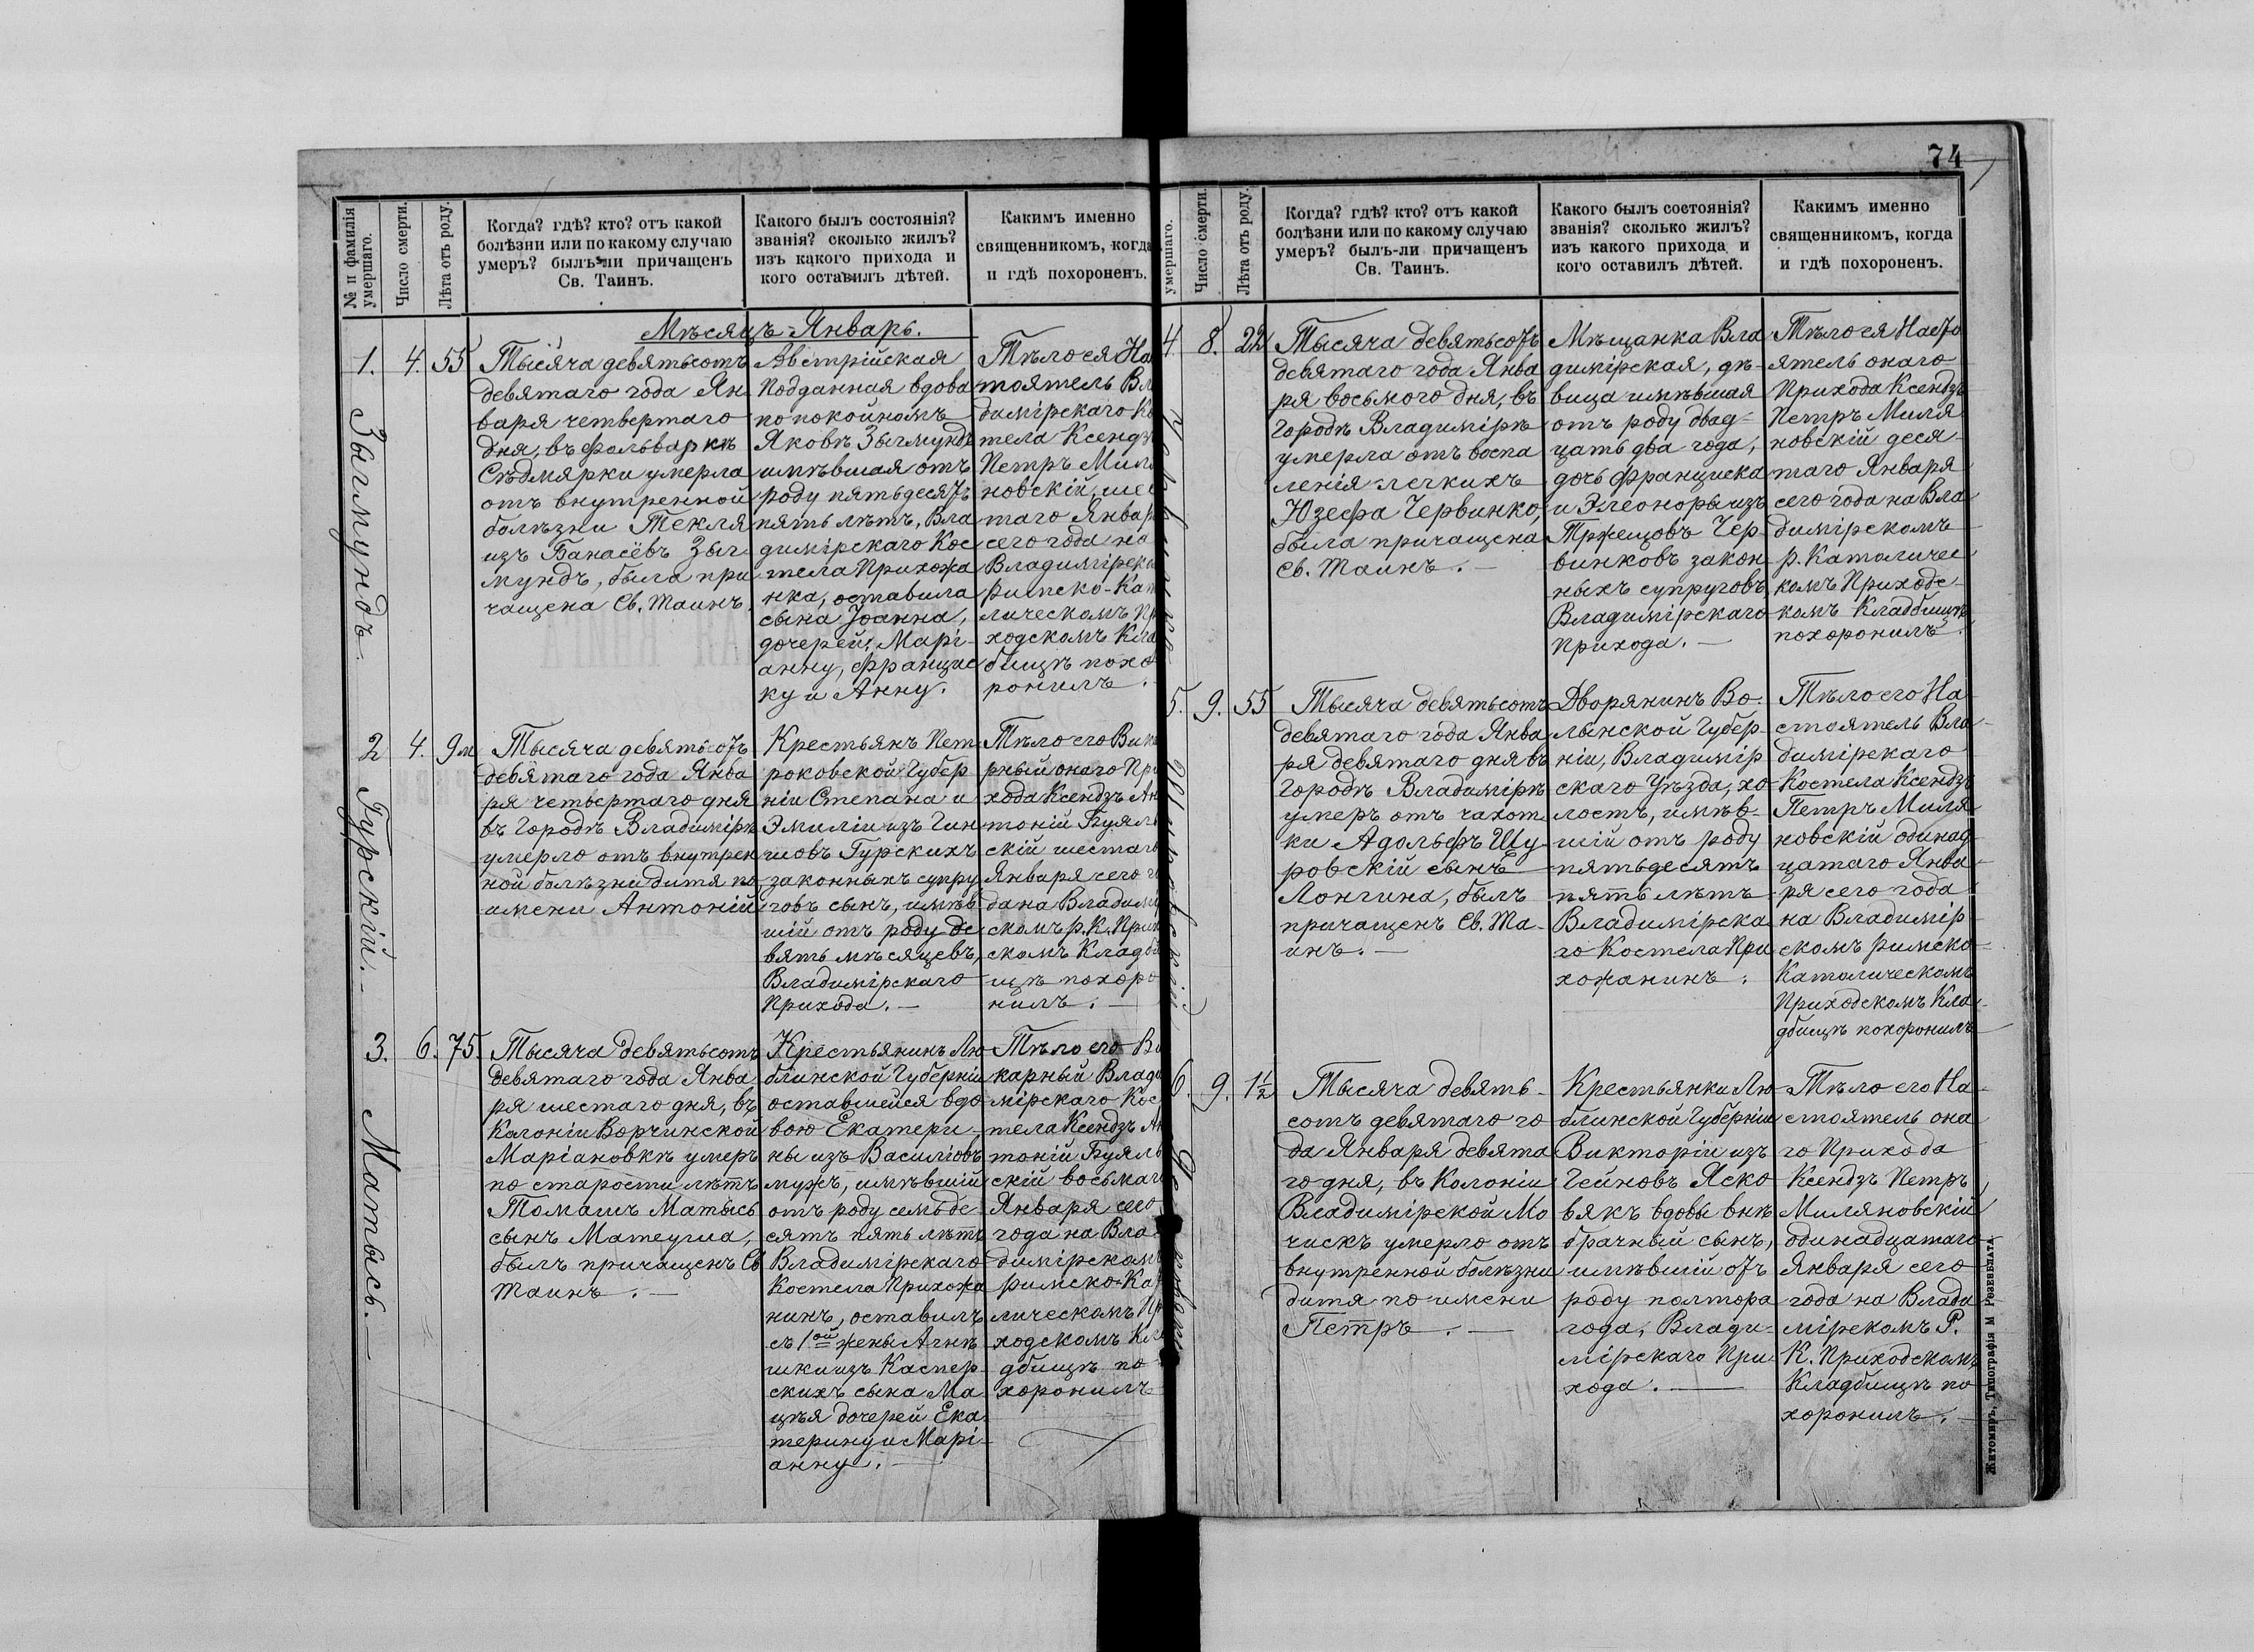 74
№ и фамилія
умершаго.
Число смерти.
Лѣта отъ роду.
Когда? гдѣ? кто? отъ какой
болѣзни или по какому случаю
умеръ? былъ-ли причащенъ
Св. Таинъ.
Какого былъ состоянія?
званія? сколько жилъ?
изъ какого прихода и
кого оставилъ дѣтей.
Какимъ именно
священникомъ, когда
и гдѣ похороненъ.
Мѣсяцъ Январь.
1.
Зыгмундъ.
4.
55
Тысяча девятьсотъ
девятаго года Ян-
варя четвертаго
дня, въ фольваркѣ
Сѣдмярки умерла
отъ внутренной
болѣзни Текля
изъ Банасёвъ Зыг-
мундъ, была при
чащена Св. Таинъ.
Австрійская
Подданная вдова
по покойномъ
Яковѣ Зыгмундѣ
имѣвшая отъ
роду пятьдесятъ
пять лѣтъ, Вла
димірскаго Кос
тела Прихожа
нка, оставила
сына Іоанна,
дочерей: Марі-
анну, Францис
ку и Анну.
Тѣло ея На
тоятель Вл
димірскаго Ко
тела Ксендзъ
Петръ Миля
новскій, шес
таго Январ
сего года на
Владимірско
Римско-Кат
лическомъ Пр
ходскомъ Кла
бищѣ похо
ронилъ.
2
Гурскій.
4.
9м
Тысяча девятьсотъ
девятаго года Янва
ря четвертаго дня
въ Городѣ Владимірѣ
умерло отъ внутрен
ной болѣзни дитя по
имени Антоній
Крестьянъ Пет
роковской Губер
ніи Степана и
Эмиліи изъ Гин
шовъ Гурскихъ
законныхъ супру
говъ сынъ, имѣв
шій отъ роду де
вять мѣсяцевъ,
Владимірскаго
Прихода.
Тѣло его Вика
рный онаго При
хода Ксендзъ Ан
тоній Буяль
скій шестаго
Января сего го
да на Владимі
скомъ Р. К. Прих
скомъ Кладби
щѣ похоро
нилъ.
3.
Матысь.
6.
75.
Тысяча девятьсотъ
девятаго года Янва
ря шестаго дня, въ
Колоніи Ворчинской
Маріановкѣ умеръ
по старости лѣтъ
Томашъ Матысь
сынъ Матеуша,
былъ причащенъ Св
Таинъ.
Крестьянинъ Лю
блинской Губерніи
оставшейся вдо
вою Екатери-
ны изъ Василювъ
мужъ, имѣвшій
отъ роду семьде
сятъ пять лѣтъ
Владимірскаго
Костела Прихожа
нинъ, оставилъ
съ 1ой жены Агнѣ
шки изъ Каспер
скихъ сына Ма
цѣя дочерей Ека
терину и Марі-
анну.
Тѣло его Ви
карный Влади
мірскаго Кос
тела Ксендзъ Ан
тоній Буяль
скій восьмаго
Января сего
года на Вла-
димірскомъ
Римско-Като
лическомъ Пр
ходскомъ Кла
дбищѣ по
хоронилъ
умершаго.
Число смерти.
Лѣта отъ роду.
Когда? гдѣ? кто? отъ какой
болѣзни или по какому случаю
умеръ? былъ-ли причащенъ
Св. Таинъ.
Какого былъ состоянія?
званія? сколько жилъ?
изъ какого прихода и
кого оставилъ дѣтей.
Какимъ именно
священникомъ, когда
и гдѣ похороненъ.
4.
8.
22
Тысяча девятьсотъ
девятаго года Янва
ря восьмого дня, въ
Городѣ Владимірѣ
умерла отъ воспа
ленія легкихъ
Юзефа Червинко,
была причащена
Св. Таинъ.
Мѣщанка Вла
димірская, дѣ-
вица имѣвшая
отъ роду двад-
цать два года,
дочь Франциска
и Элеоноры изъ
Тржещовъ Чер-
винковъ закон
ныхъ супруговъ
Владимірскаго
Прихода.
Тѣло ея Насто
ятель онаго
Прихода Ксендзъ
Петръ Миля
новскій деся-
таго Января
сего года на Вла
димірскомъ
Р. Католичес
комъ Приходс-
комъ Кладбищѣ
похоронилъ.
5.
9.
55
Тысяча девятьсотъ
девятаго года Янва
ря девятаго дня въ
Городѣ Владимірѣ
умеръ отъ чахот
ки Адольфъ Щу-
ровскій сынъ
Лонгина, былъ
причащенъ Св. Та-
инъ.
Дворянинъ Во-
лынской Губер-
ніи, Владимір
скаго Уѣзда, хо-
лостъ, имѣв-
шій отъ роду
пятьдесятъ
пять лѣтъ
Владимірска
го Костела При
хожанинъ.
Тѣло его На-
стоятель Вла-
димірскаго
Костела Ксендзъ
Петръ Миля
новскій одинад-
цатаго Янва-
ря сего года
на Владимір-
скомъ Римско
Католическомъ
Приходскомъ Кла-
дбищѣ похоронилъ
6.
9.
1½
Тысяча девять-
сотъ девятаго го
да Января девята
го дня, въ Колоніи
Владимірской Мо
чискъ умерло отъ
внутренной болѣзни
дитя по имени
Петръ.
Крестьянки Лю
блинской Губерніи
Викторіи изъ
Гейновъ Яско
вякъ вдовы внѣ
брачный сынъ,
имѣвшій отъ
роду полтора
года, Влади-
мірскаго При
хода.
Тѣло его На-
стоятель она
го Прихода
Ксендзъ Петръ
Миляновскій
одинадцатаго
Января сего
года на Влади
мірскомъ Р.
К. Приходскомъ
Кладбищѣ по
хоронилъ.
Житомиръ, Типографія М Розенблата